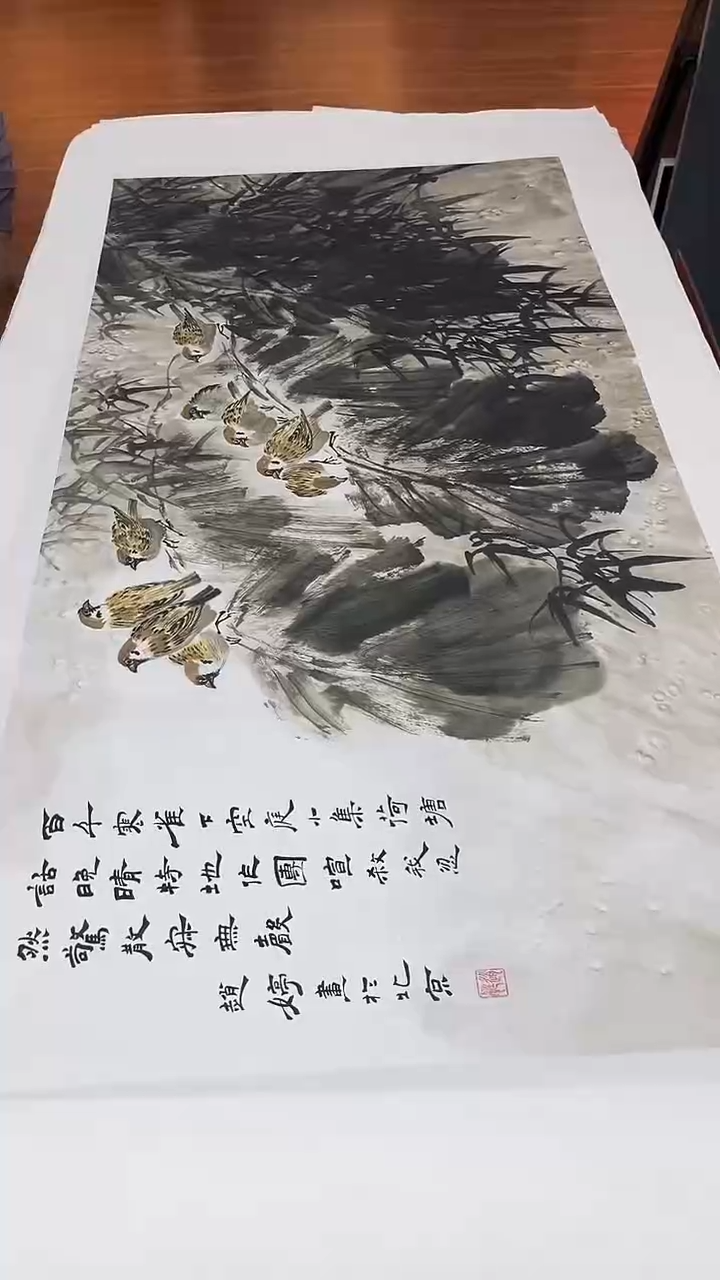 百千寒雀下空庭小集荷塘
話晚晴特地作團喧殺我忽
然驚散寂無聲
趙婷畫於北京